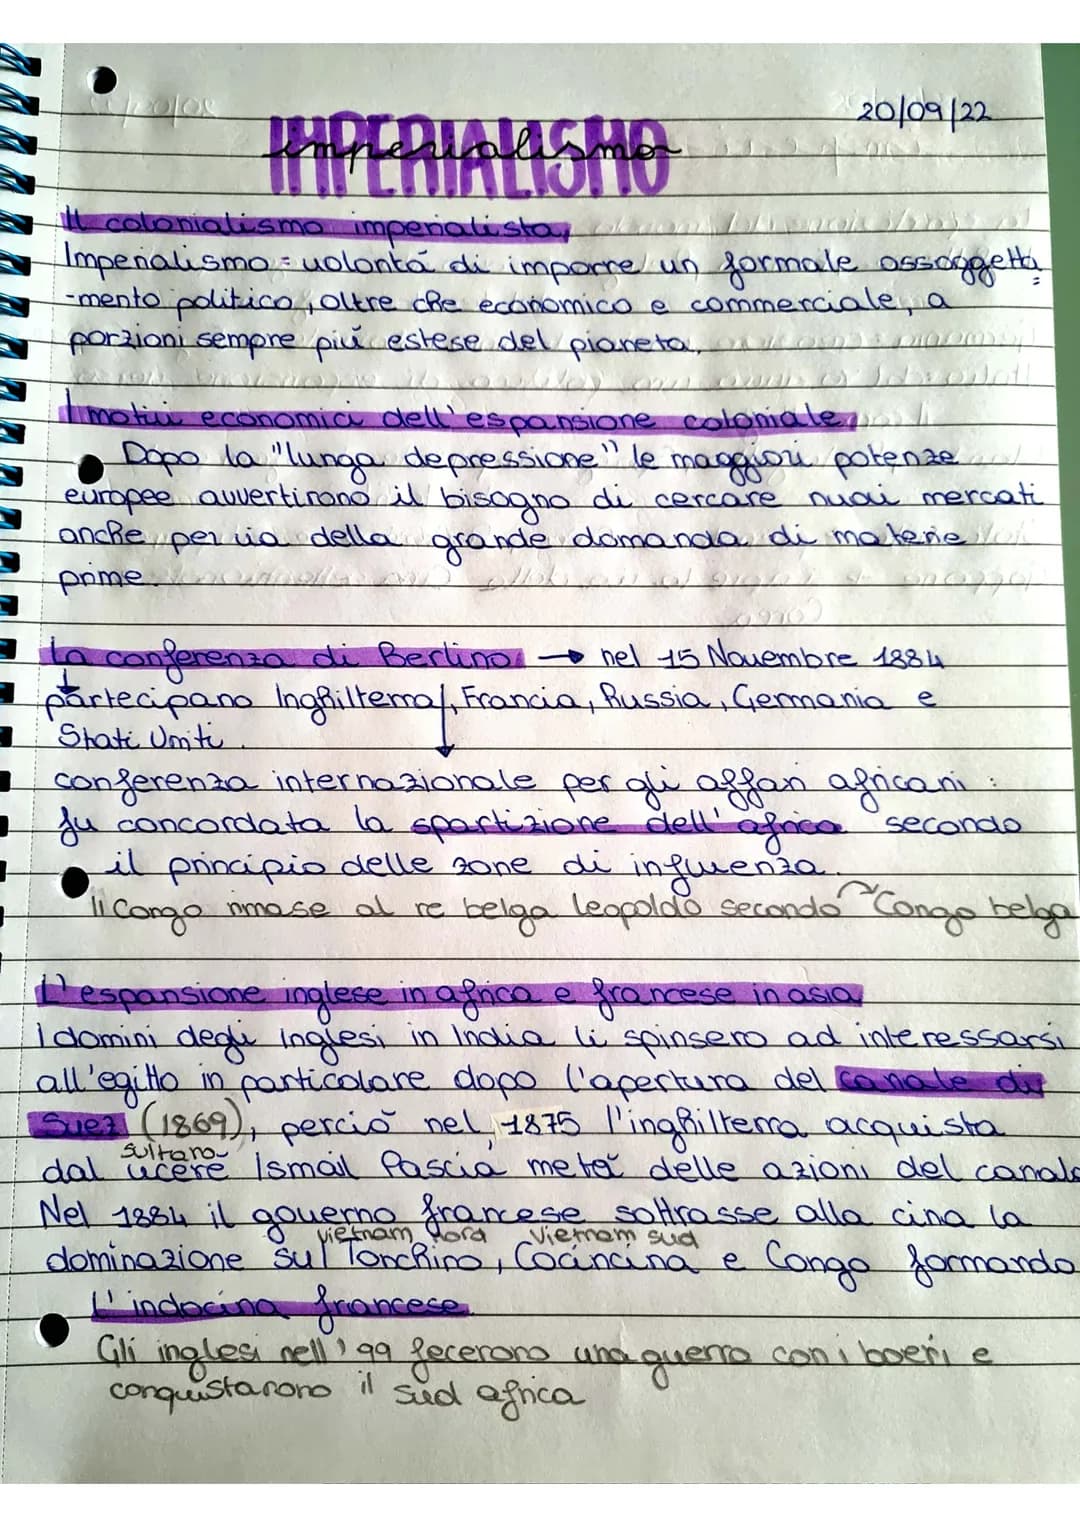 20/09/22
IMPERIALISMO
imperialismo
Il colonialismo imperialista,
Imperialismo = volontá di imporre un formale assoggetta
-mento politico, oltre che economico e commerciale, a
porzioni sempre piú estese del pianeta.
I motivi economici dell'espansione coloniale,
Dopo la "lunga depressione" le maggiori potenze
europee avvertirono il bisogno di cercare nuovi mercati
anche per via della grande domanda di materie
prime.
La conferenza di Berlino → nel 15 Novembre 1884
partecipano Inghilterra, Francia, Russia, Germania e
Stati Uniti.
conferenza internazionale per gli affari africani:
fu concordata la spartizione dell'africa secondo
il principio delle zone di influenza.
Il Congo rimase al re belga leopoldo secondo Congo belga
L'espansione inglese in africa e francese in asia
I domini degli Inglesi in India li spinsero ad interessarsi
all'egitto in particolare dopo l'apertura del canale di
Suez (1869), perciò nel 1875 l'inghilterra acquista
sultano
dal viceré Ismail Pasciá metá delle azioni del canale
Nel 1884 il governo francese sottrasse alla cina la
vietnam nord Vietnam sud
dominazione sul Tonchino, Cocincina e Congo formando
L'indocina francese.
Gli inglesi nell'99 fecerono una guerra con i boeri e
conquistarono il sud africa